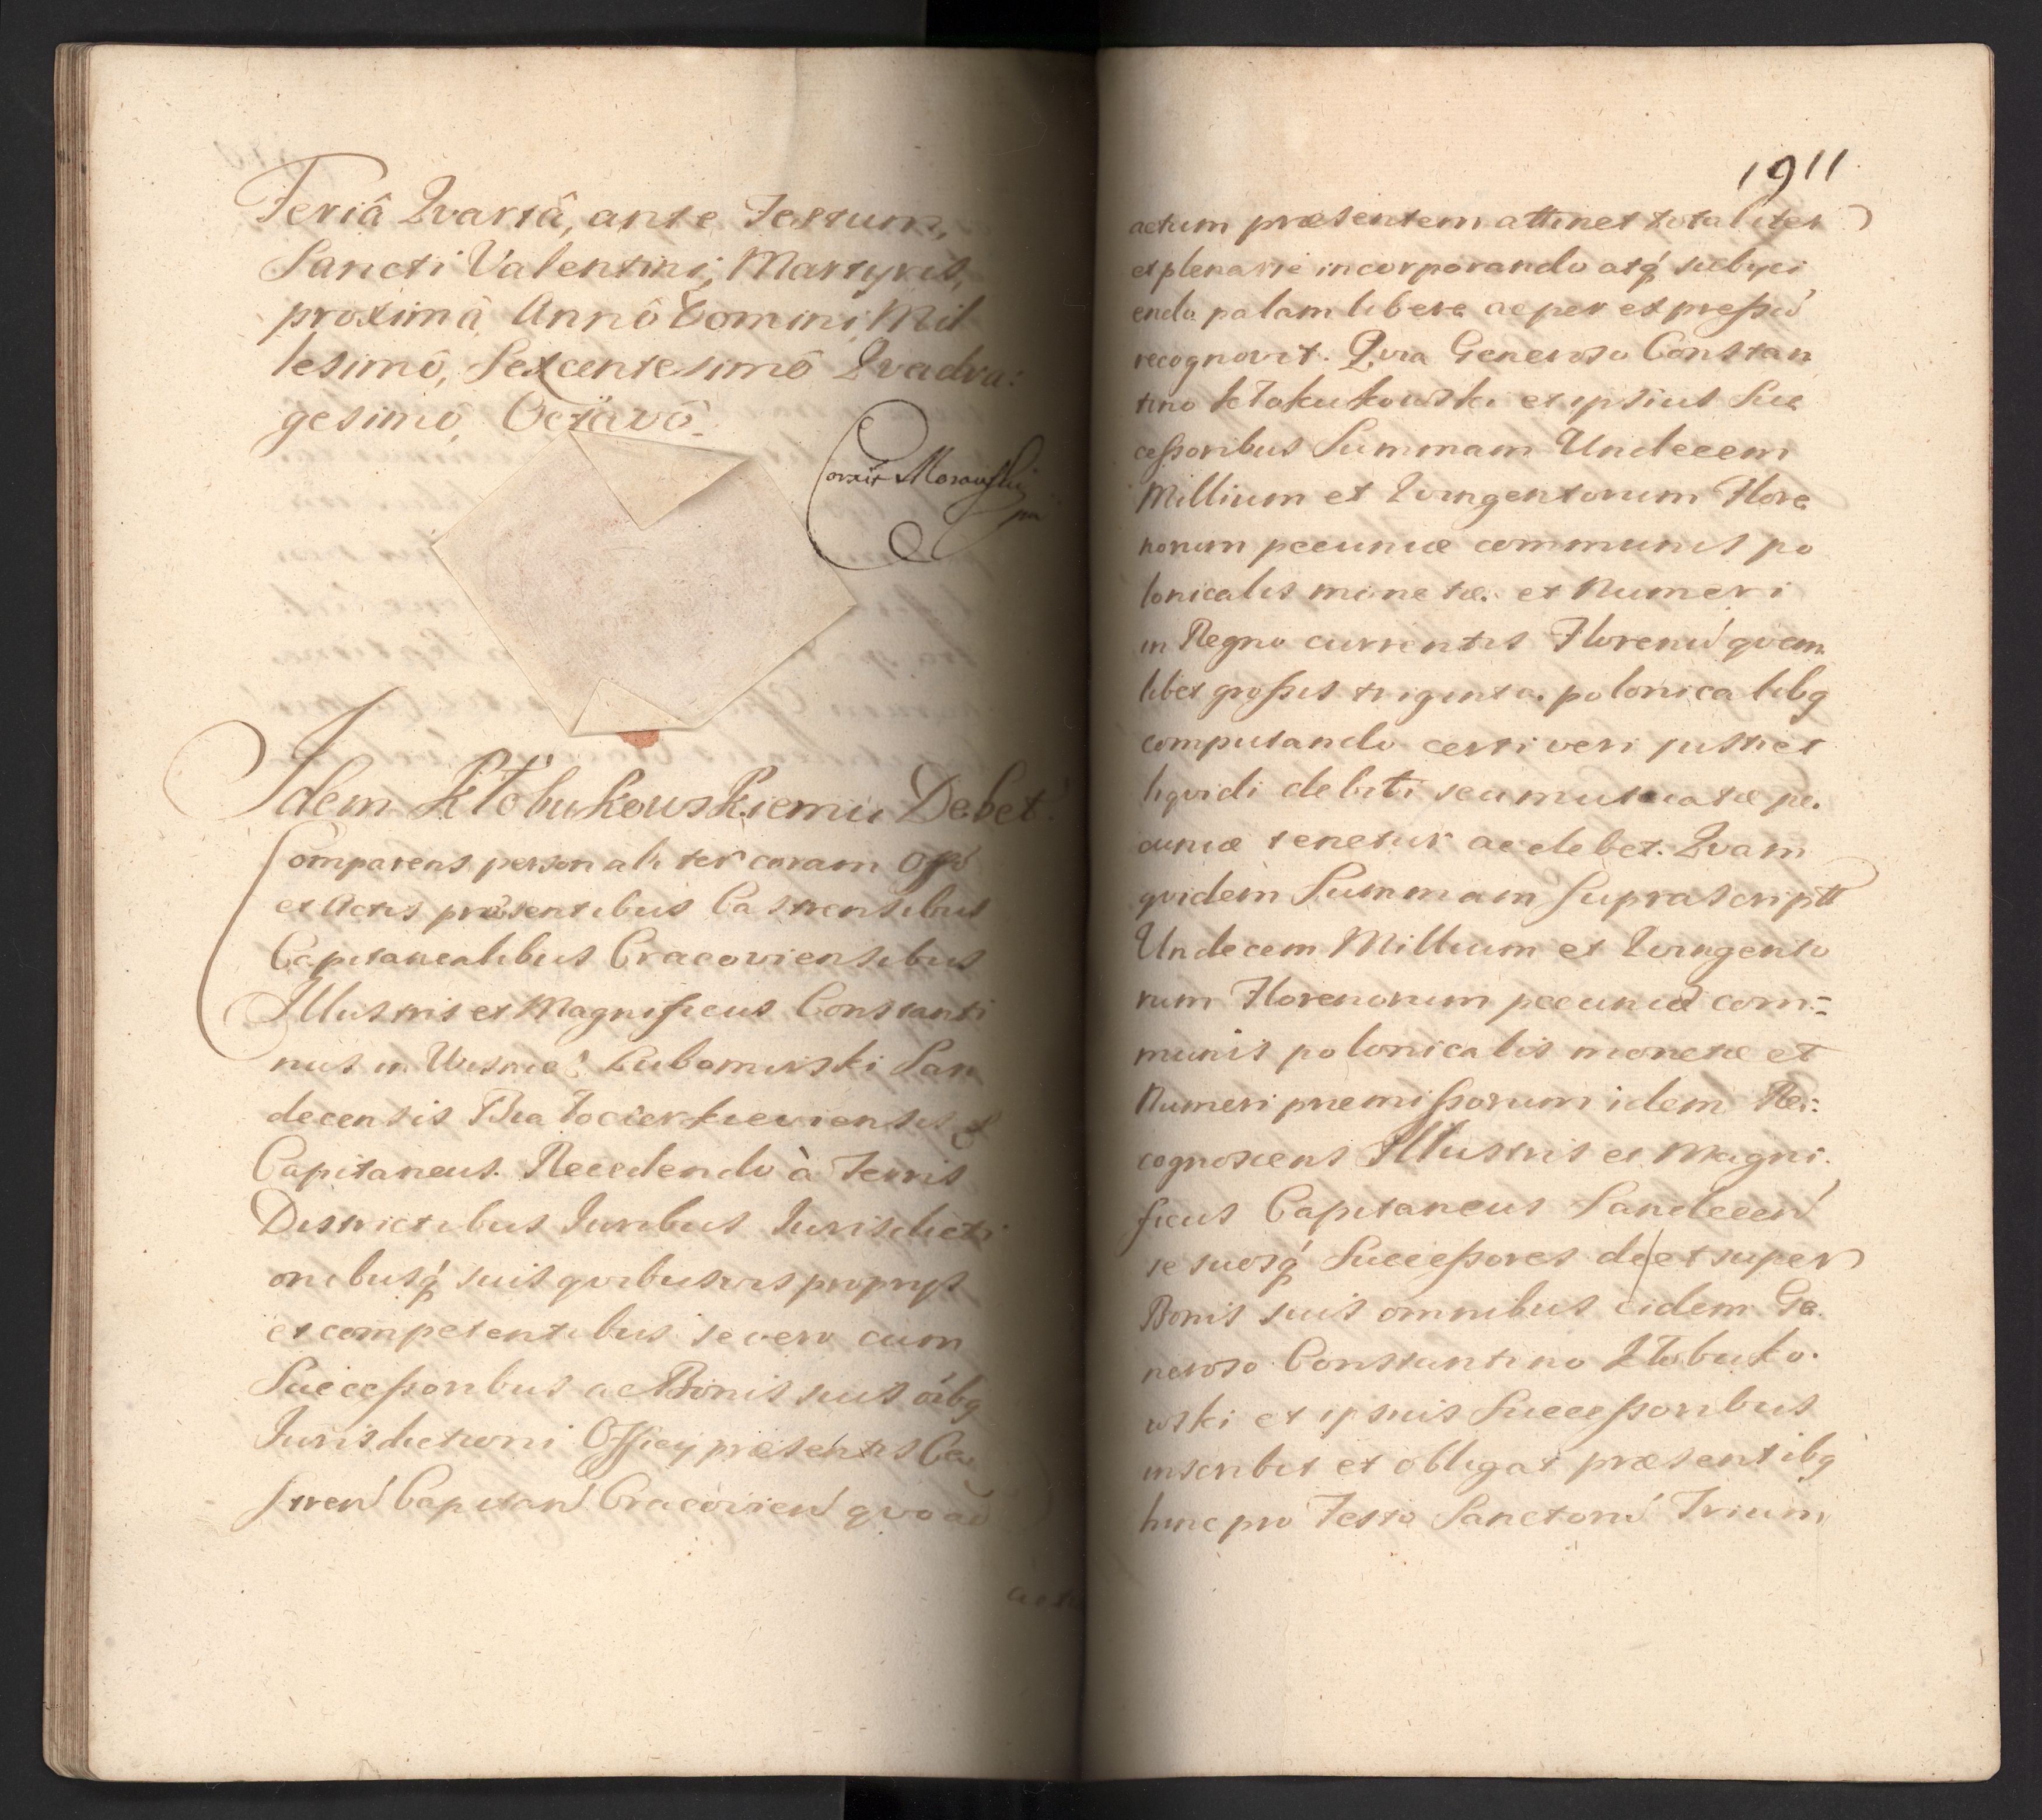 Feriâ Qvartâ, ante Festum,
Sancti Valentini, Martyris,
proximâ Annô Domini Mil
lesimô, Sexcentesimô Qvadra:
gesimô, Octavô.
Corexit Morawski
Idem Kłobukowskiemu Debet.
Comparens personaliter coram Offō
et Actis præsentibus Castrensibus
Capitanealibus Cracoviensibus
Illustris et Magnificus Constanti
nus in Wisnicz Lubomirski San
decensis Białocierkieviensis &
Capitaneus. Recedendo à Terris
Districtibus Iuribus Iurisdicti
onibusq́ suis qvibusvis proprijs
et competentibus se vero cum
Successoribus ac Bonis suis oībq
Iurisdictioni Officij præsentis Ca
stren Capitan Cracovien qvo ad
actu
1911
actum præsentem attinet totaliter
et plenarie incorporando atq́ subyci
endo palam libere ac per expressū
recognovit. Qvia Generoso Constan
tino Kłokukowski et ipsius Suc
cessoribus Summam Undecem
Millium et Qvingentorum Flore
norum pecuniæ communis po
lonicalis monetæ. et Numeri
in Regno currentis Florenū qvem
libet grossis triginta. polonicalibq
computando certi veri justi et
liqvidi debiti seu mutuatæ pe.
cuniæ tenetur ac debet. Qvam
qvidem Summam Suprascriptā
Undecem Millium et Qvingento
rum Florenorum pecuniæ com=
munis polonicalis monetæ et
Numeri præmissorum idem Re:
cognoscens Illustris et Magni.
ficus Capitaneus Sandecen
se suosq́ Successores de et super
Bonis suis omnibus eidem Ge.
neroso Constantino Kłobuko.
wski et ipsius Successoribus
inscribit et obligat præsentibq
hinc pro Festo Sanctorū Trium